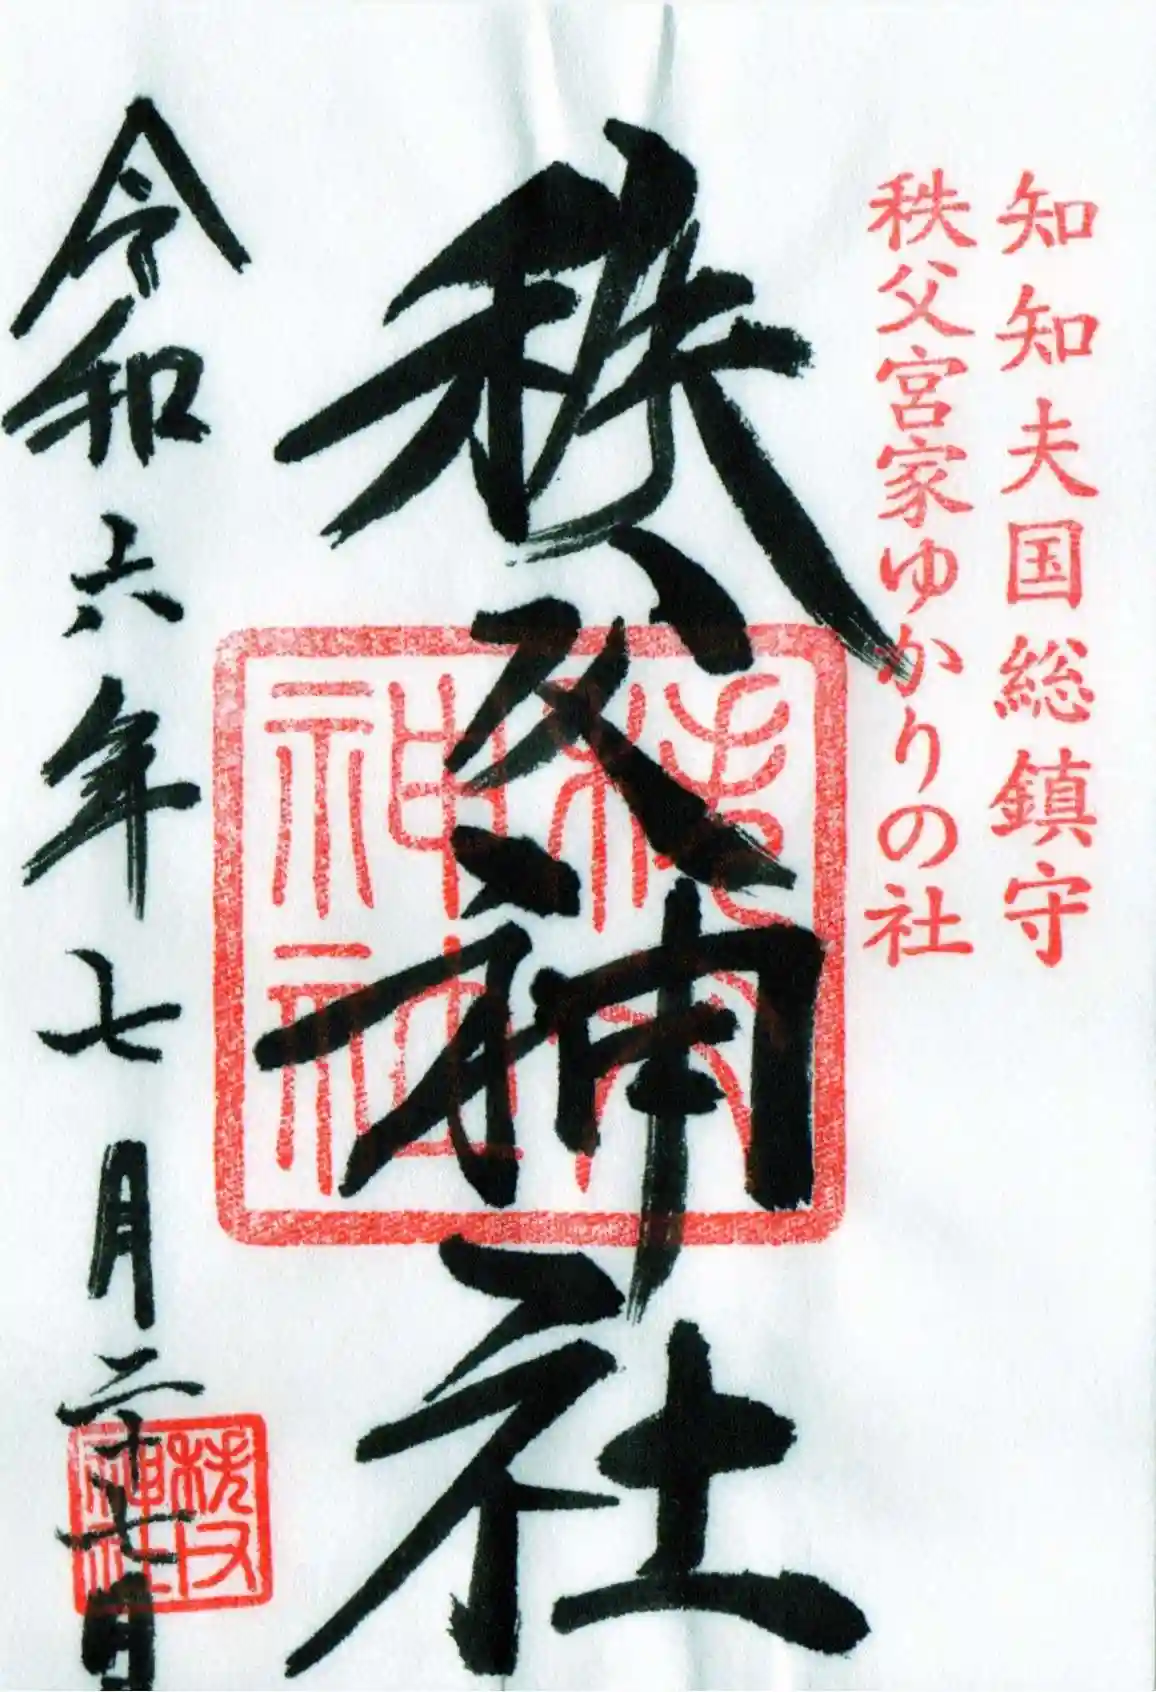 知知夫国総鎮守
秩父宮家ゆかりの社
秩父神社
秩父神社
令和六年七月二十七日
秩父神社